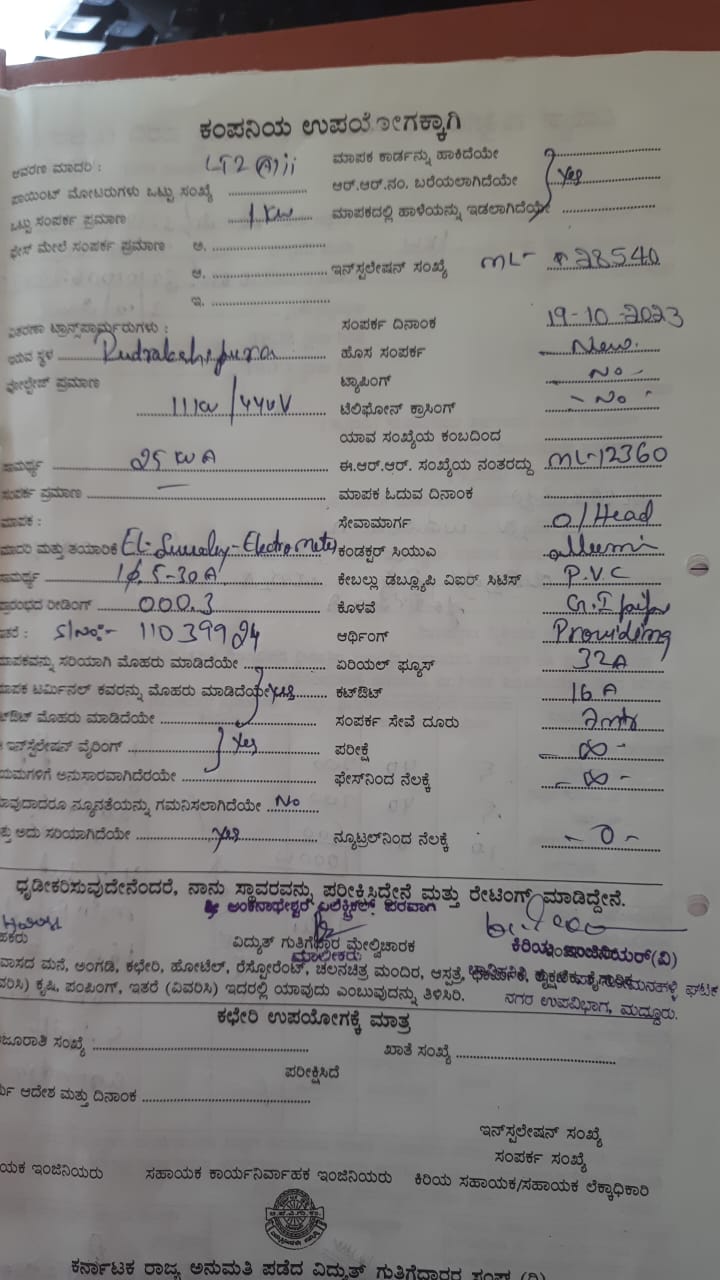 ಕಂಪನಿಯ ಉಪಯೋಗಕ್ಕಾಗಿ
ಆವರಣ ಮಾದರಿ : LT2 (A) ii ಮಾಪಕ ಕಾರ್ಡನ್ನು ಹಾಕಿದೆಯೇ
ಪಾಯಿಂಟ್ ಮೋಟರುಗಳು ಒಟ್ಟು ಸಂಖ್ಯೆ ಆರ್.ಆರ್.ನಂ. ಬರೆಯಲಾಗಿದೆಯೇ Yes
ಒಟ್ಟು ಸಂಪರ್ಕ ಪ್ರಮಾಣ 1 KW ಮಾಪಕದಲ್ಲಿ ಹಾಳೆಯನ್ನು ಇಡಲಾಗಿದೆಯೇ
ಫೇಸ್ ಮೇಲೆ ಸಂಪರ್ಕ ಪ್ರಮಾಣ ಅ.
ಆ. ಇನ್‌ಸ್ಟಲೇಷನ್ ಸಂಖ್ಯೆ ML- 28540
ಇ.
ವಿತರಣಾ ಟ್ರಾನ್ಸ್‌ಫಾರ್ಮರುಗಳು : ಸಂಪರ್ಕ ದಿನಾಂಕ 19-10-2023
ಸ್ಥಳ Rudrakshipura ಹೊಸ ಸಂಪರ್ಕ New.
ವೋಲ್ಟೇಜ್ ಪ್ರಮಾಣ ಟ್ಯಾಪಿಂಗ್ - No -
11KV/440V ಟೆಲಿಫೋನ್ ಕ್ರಾಸಿಂಗ್ - No -
ಯಾವ ಸಂಖ್ಯೆಯ ಕಂಬದಿಂದ
ಸಾಮರ್ಥ್ಯ 25 KVA ಈ.ಆರ್.ಆರ್. ಸಂಖ್ಯೆಯ ನಂತರದ್ದು ML-12360
ಸಂಪರ್ಕ ಪ್ರಮಾಣ — ಮಾಪಕ ಓದುವ ದಿನಾಂಕ
ಮಾಪಕ : ಸೇವಾಮಾರ್ಗ O/Head
ಮಾದರಿ ಮತ್ತು ತಯಾರಿಕೆ ಕಂಡಕ್ಟರ್ ಸಿಯುಎ
ಸಾಮರ್ಥ್ಯ 1φ, 5-30A ಕೇಬಲ್ಲು ಡಬ್ಲ್ಯೂಪಿ ವಿಐರ್ ಸಿಟಿಸ್ P.V.C
ಪ್ರಾರಂಭದ ರೀಡಿಂಗ್ 000.3 ಕೊಳವೆ G.I pipe
ಇತರೆ : S/No:- 11039924 ಆರ್ಥಿಂಗ್ Providing
ಮಾಪಕವನ್ನು ಸರಿಯಾಗಿ ಮೊಹರು ಮಾಡಿದೆಯೇ ಏರಿಯಲ್ ಫ್ಯೂಸ್ 32A
ಮಾಪಕ ಟರ್ಮಿನಲ್ ಕವರನ್ನು ಮೊಹರು ಮಾಡಿದೆಯೇ Yes ಕಟ್‌ಔಟ್ 16 A
ಕಟ್‌ಔಟ್ ಮೊಹರು ಮಾಡಿದೆಯೇ ಸಂಪರ್ಕ ಸೇವೆ ದೂರು
ಇನ್‌ಸ್ಟಲೇಷನ್ ವೈರಿಂಗ್ Yes ಪರೀಕ್ಷೆ - ∞ -
ನಿಯಮಗಳಿಗೆ ಅನುಸಾರವಾಗಿದೆರೆಯೇ ಫೇಸ್‌ನಿಂದ ನೆಲಕ್ಕೆ - ∞ -
ಯಾವುದಾದರೂ ನ್ಯೂನತೆಯನ್ನು ಗಮನಿಸಲಾಗಿದೆಯೇ No
ಮತ್ತು ಅದು ಸರಿಯಾಗಿದೆಯೇ Yes ನ್ಯೂಟ್ರಲ್‌ನಿಂದ ನೆಲಕ್ಕೆ - 0 -
ಧೃಡೀಕರಿಸುವುದೇನೆಂದರೆ, ನಾನು ಸ್ಥಾವರವನ್ನು ಪರೀಕ್ಷಿಸಿದ್ದೇನೆ ಮತ್ತು ರೇಟಿಂಗ್ ಮಾಡಿದ್ದೇನೆ.
ಅಂಕನಾಥೇಶ್ವರ ಎಲೆಕ್ಟ್ರಿಕಲ್ಸ್ ಪರವಾಗಿ
ವಿದ್ಯುತ್ ಗುತ್ತಿಗೆದಾರ ಮೇಲ್ವಿಚಾರಕ ಕಿರಿಯ ಇಂಜಿನಿಯರ್(ವಿ)
ಮಾಲೀಕರು
ವಾಸದ ಮನೆ, ಅಂಗಡಿ, ಕಛೇರಿ, ಹೋಟೆಲ್, ರೆಸ್ಟೋರೆಂಟ್, ಚಲನಚಿತ್ರ ಮಂದಿರ, ಆಸ್ಪತ್ರೆ, ಘಟಕ
(ವಿವರಿಸಿ) ಕೃಷಿ, ಪಂಪಿಂಗ್, ಇತರೆ (ವಿವರಿಸಿ) ಇದರಲ್ಲಿ ಯಾವುದು ಎಂಬುವುದನ್ನು ತಿಳಿಸಿರಿ. ನಗರ ಉಪವಿಭಾಗ, ಮದ್ದೂರು.
ಕಛೇರಿ ಉಪಯೋಗಕ್ಕೆ ಮಾತ್ರ
ಮಂಜೂರಾತಿ ಸಂಖ್ಯೆ ಖಾತೆ ಸಂಖ್ಯೆ
ಪರೀಕ್ಷಿಸಿದೆ
ಆದೇಶ ಮತ್ತು ದಿನಾಂಕ
ಇನ್‌ಸ್ಟಲೇಷನ್ ಸಂಖ್ಯೆ
ಸಂಪರ್ಕ ಸಂಖ್ಯೆ
ಸಹಾಯಕ ಇಂಜಿನಿಯರು ಸಹಾಯಕ ಕಾರ್ಯನಿರ್ವಾಹಕ ಇಂಜಿನಿಯರು ಕಿರಿಯ ಸಹಾಯಕ/ಸಹಾಯಕ ಲೆಕ್ಕಾಧಿಕಾರಿ
ಕರ್ನಾಟಕ ರಾಜ್ಯ ಅನುಮತಿ ಪಡೆದ ವಿದ್ಯುತ್ ಗುತ್ತಿಗೆದಾರರ ಸಂಘ (ರಿ)